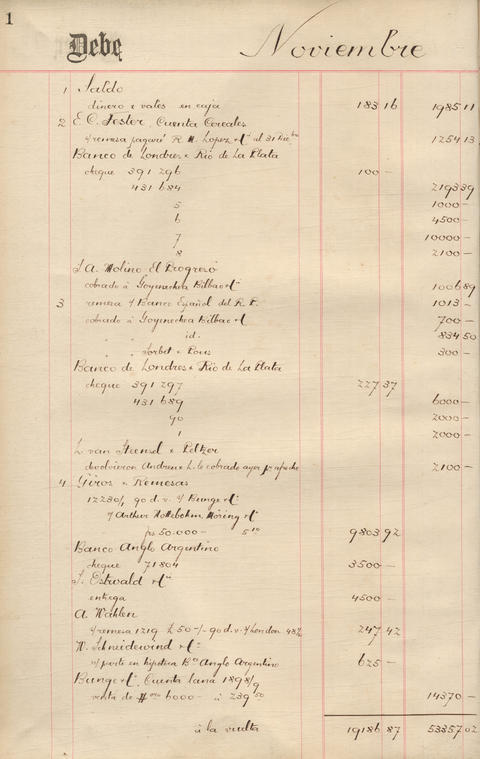 1
Debe Noviembre
1 Saldo
dinero & vales en caja 183 16 1985 11
2 E. C. Tester, Cuenta Cereales
s/remesa pagaré R. M. Lopez & Cª al 31 Dicbre 1254 13
Banco de Londres & Rio de La Plata
cheque 391 296 100 –
431 684 2193 39
5 1000 –
6 4500 –
7 10000 –
8 2100 –
S. A. Molino El Progreso
cobrado á Goyenechea Bilbao & Cª 1006 89
3 remesa s/ Banco Español del R. P. 1013 –
cobrado á Goyenechea Bilbao & Cª 700 –
" " id. 834 50
" " Sorbet & Pons 300 –
Banco de Londres & Rio de La Plata
cheque 391 297 227 37
431 689 6000 –
90 2000 –
1 2000 –
L. van Stensel & Peltzer
devolvieron Andreu & L. le cobrado ayer pr 2100 –
4 Giros & Remesas
12230/1 90 d. v. s/ Bunge & Cª
s/ Arthur Nottebohm Möring & Cª
frs 50.000 – 5 10 9803 92
Banco Anglo Argentino
cheque 71804 3500 –
S. Ostwald & Cª
entrega 4500 –
A. Wählen
s/remesa 1219 £ 50-/- 90 d. v. s/London 48½ 247 42
W. Schneidewind & Cª
n/ parte en hipoteca Bco Anglo Argentino 625 –
Bunge & Cª, Cuenta lana 1898/9
venta de $oro 6000 – á 239 50 14370 –
á la vuelta 19186 87 53357 02